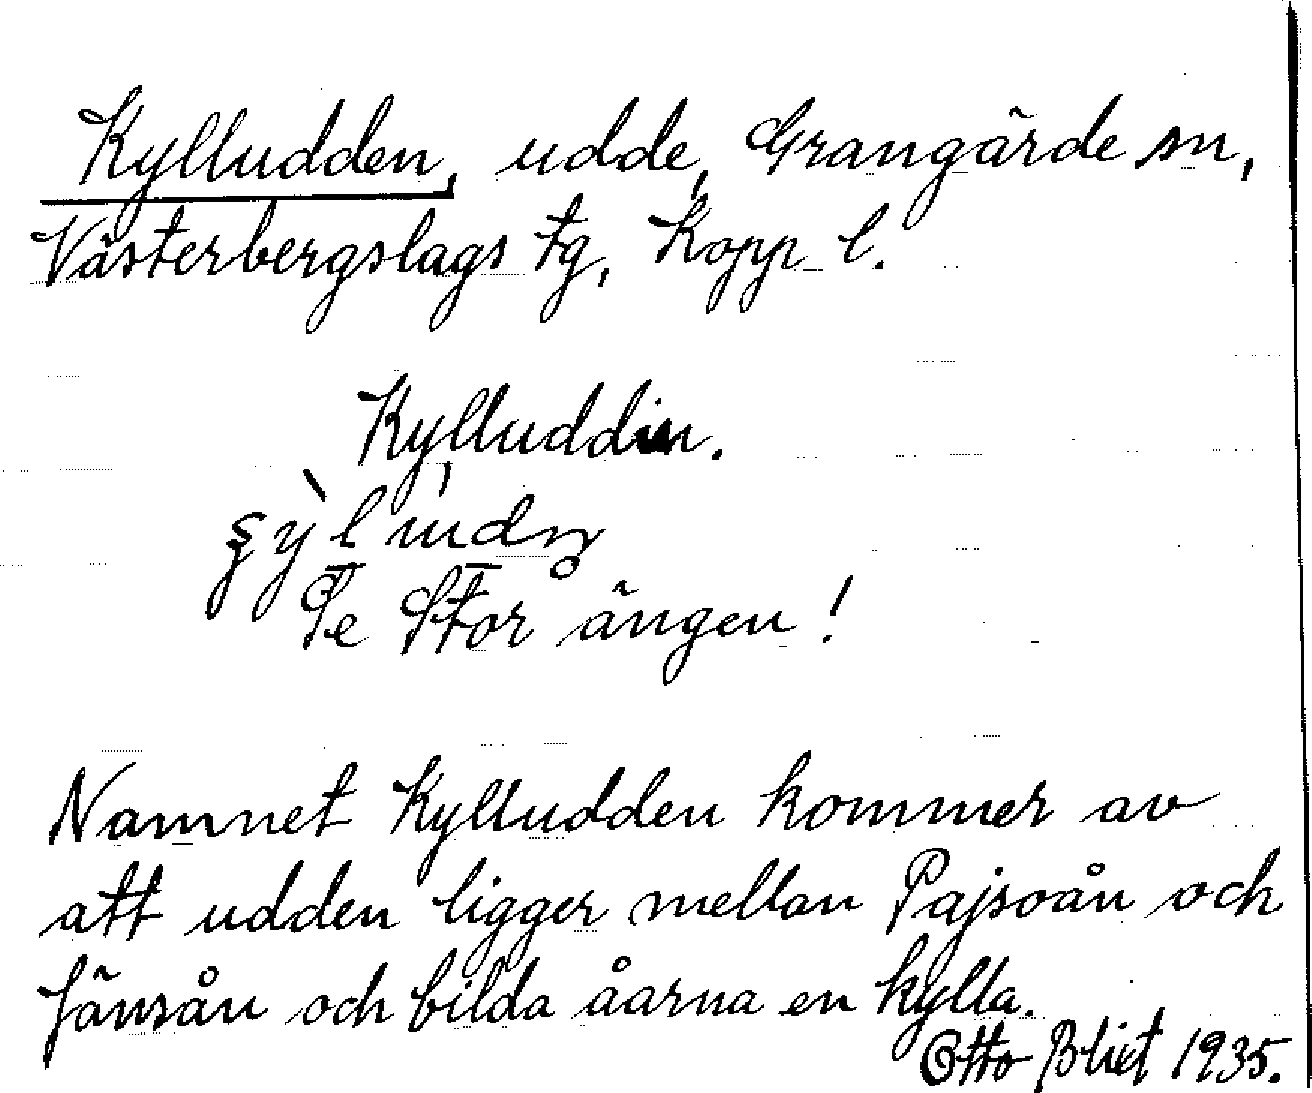 Kylludden, udde, Grangärde sn,
Västerbergslags tg, Kopp. l.
Kylluddin.
Se Storängen!
Namnet Kylludden kommer av
att udden ligger mellan Pajsoån och
Jänsån och bilda åarna en kylla.
Otto Blixt 1935.